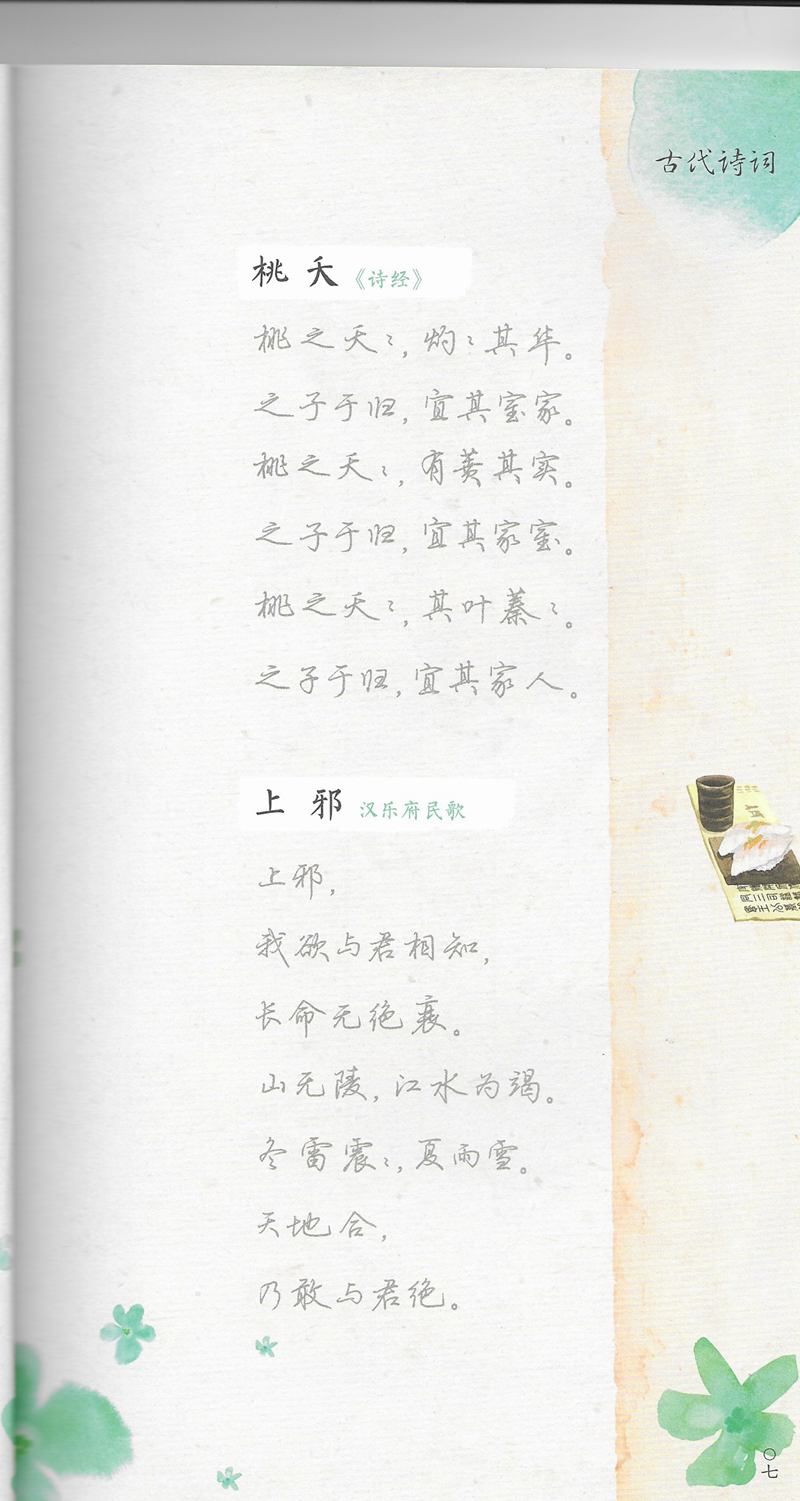 古代诗词
桃夭《诗经》
桃之夭〻，灼〻其华。
之子于归，宜其室家。
桃之夭〻，有蕡其实。
之子于归，宜其家室。
桃之夭〻，其叶蓁〻。
之子于归，宜其家人。
上邪 汉乐府民歌
上邪，
我欲与君相知，
长命无绝衰。
山无陵，江水为竭。
冬雷震〻，夏雨雪。
天地合，
乃敢与君绝。
〇七